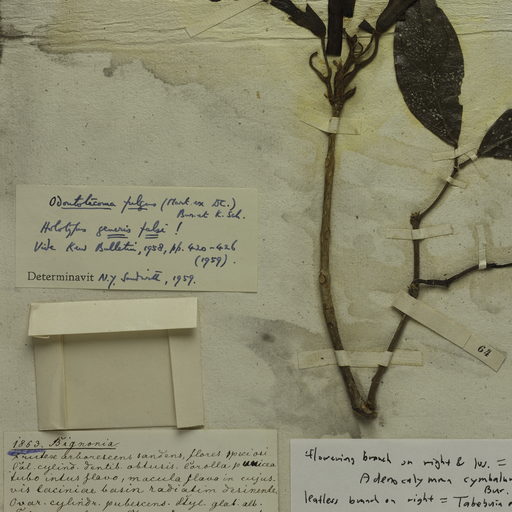 Odontotecoma fulgens (Mart. ex DC.)
Bur. et K. Sch.
Holotypus generis falsi !
Vide Kew Bulletin, 1958, pp. 420-426
(1959).
Determinavit N.Y. Sandwith, 1959.
64
1863. Bignonia
Frutex arborescens sandens, flores speciosi
Cal. cylind. dentib. obtusis. Corolla punicea
tubo intus flavo, macula flava in cujus-
vis laciniae basin radiatim desinente
Ovar. cylindr. pubescens. Styl. glat. alb.
flowering branch on right & lvs. =
Adenocalymma cymbalum
Bur.
leafless branch on right = Tabebuia